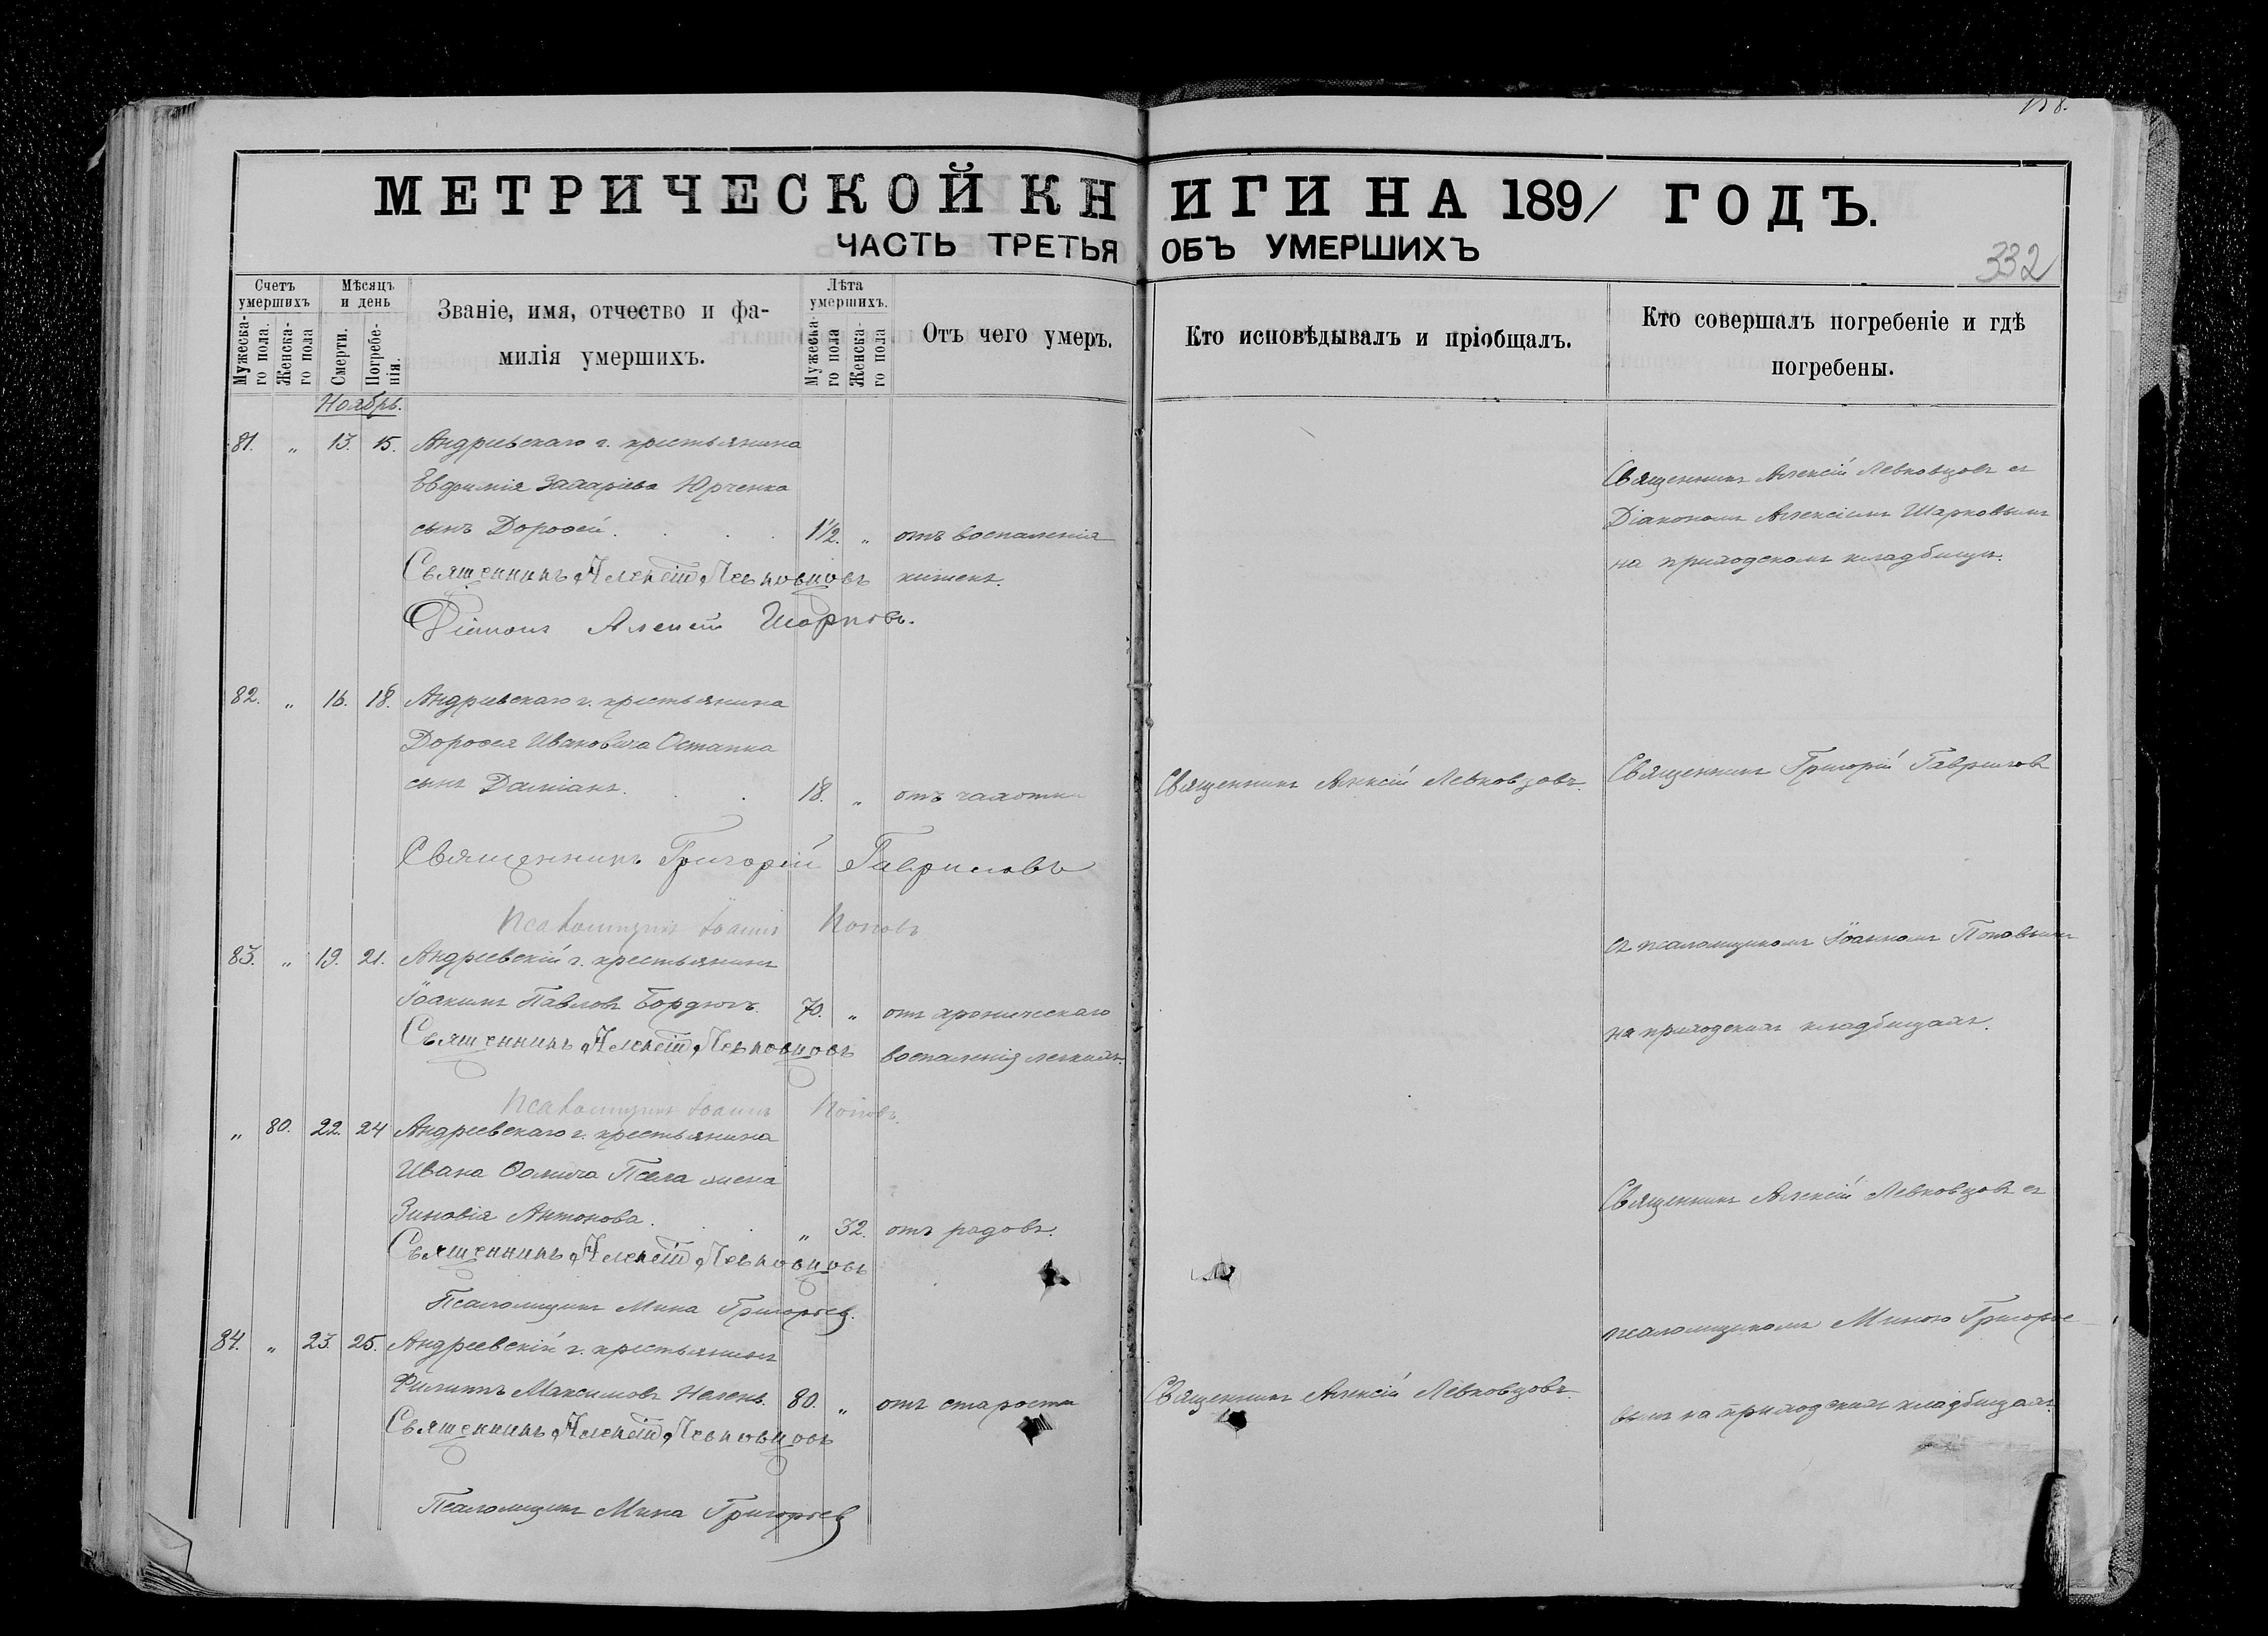 158.
МЕТРИЧЕСКОЙ КНИГИ НА 1891 ГОДЪ.
ЧАСТЬ ТРЕТЬЯ ОБЪ УМЕРШИХЪ
332
Счетъ умершихъ
Мужеска-го пола.
Женска-го пола
Мѣсяцъ и день
Смерти.
Погребе-нія.
Званіе, имя, отчество и фа-
милія умершихъ.
Лѣта умершихъ.
Мужеска-го пола
Женска-го пола
Отъ чего умеръ.
Кто исповѣдывалъ и пріобщалъ.
Кто совершалъ погребеніе и гдѣ
погребены.
Ноябрь.
81. „ 13. 15. Андреевскаго г. крестьянина
Евфимія Захаріева Юрченка
сынъ Дорофей. 1½. „ отъ воспаленія
Священникъ Алексій Левковцовъ кишекъ.
Діаконъ Алексій Шарковъ.
Священникъ Алексій Левковцовъ съ
Діакономъ Алексіемъ Шарковымъ
на приходскомъ кладбищѣ.
82. „ 16. 18. Андреевскаго г. крестьянина
Дорофея Ивановича Остапка
сынъ Даміанъ. 18. „ отъ чахотки
Священникъ Алексій Левковцовъ.
Священникъ Григорій Гавриловъ
Священникъ Григорій Гавриловъ
Псаломщикъ Іоаннъ Поповъ
съ псаломщикомъ Іоанномъ Поповымъ
83. „ 19. 21. Андреевскій г. крестьянинъ
Іоакимъ Павловъ Бордюгъ. 70. „ отъ хроническаго
Священникъ Алексій Левковцовъ воспаленія легкихъ.
на приходскихъ кладбищахъ.
Псаломщикъ Іоаннъ Поповъ.
„ 80. 22. 24 Андреевскаго г. крестьянина
Ивана Ѳомича жена
Зиновія Антонова. „ 32. отъ родовъ.
Священникъ Алексій Левковцовъ
Псаломщикъ Мина Григорьев.
Священникъ Алексій Левковцовъ съ
псаломщикомъ Миною Григорье
84. „ 23. 25. Андреевскій г. крестьянинъ
Филиппъ Максимовъ 80. „ отъ старости
Священникъ Алексій Левковцовъ
Священникъ Алексій Левковцовъ.
вымъ на приходскихъ кладбищахъ.
Псаломщикъ Мина Григорьев